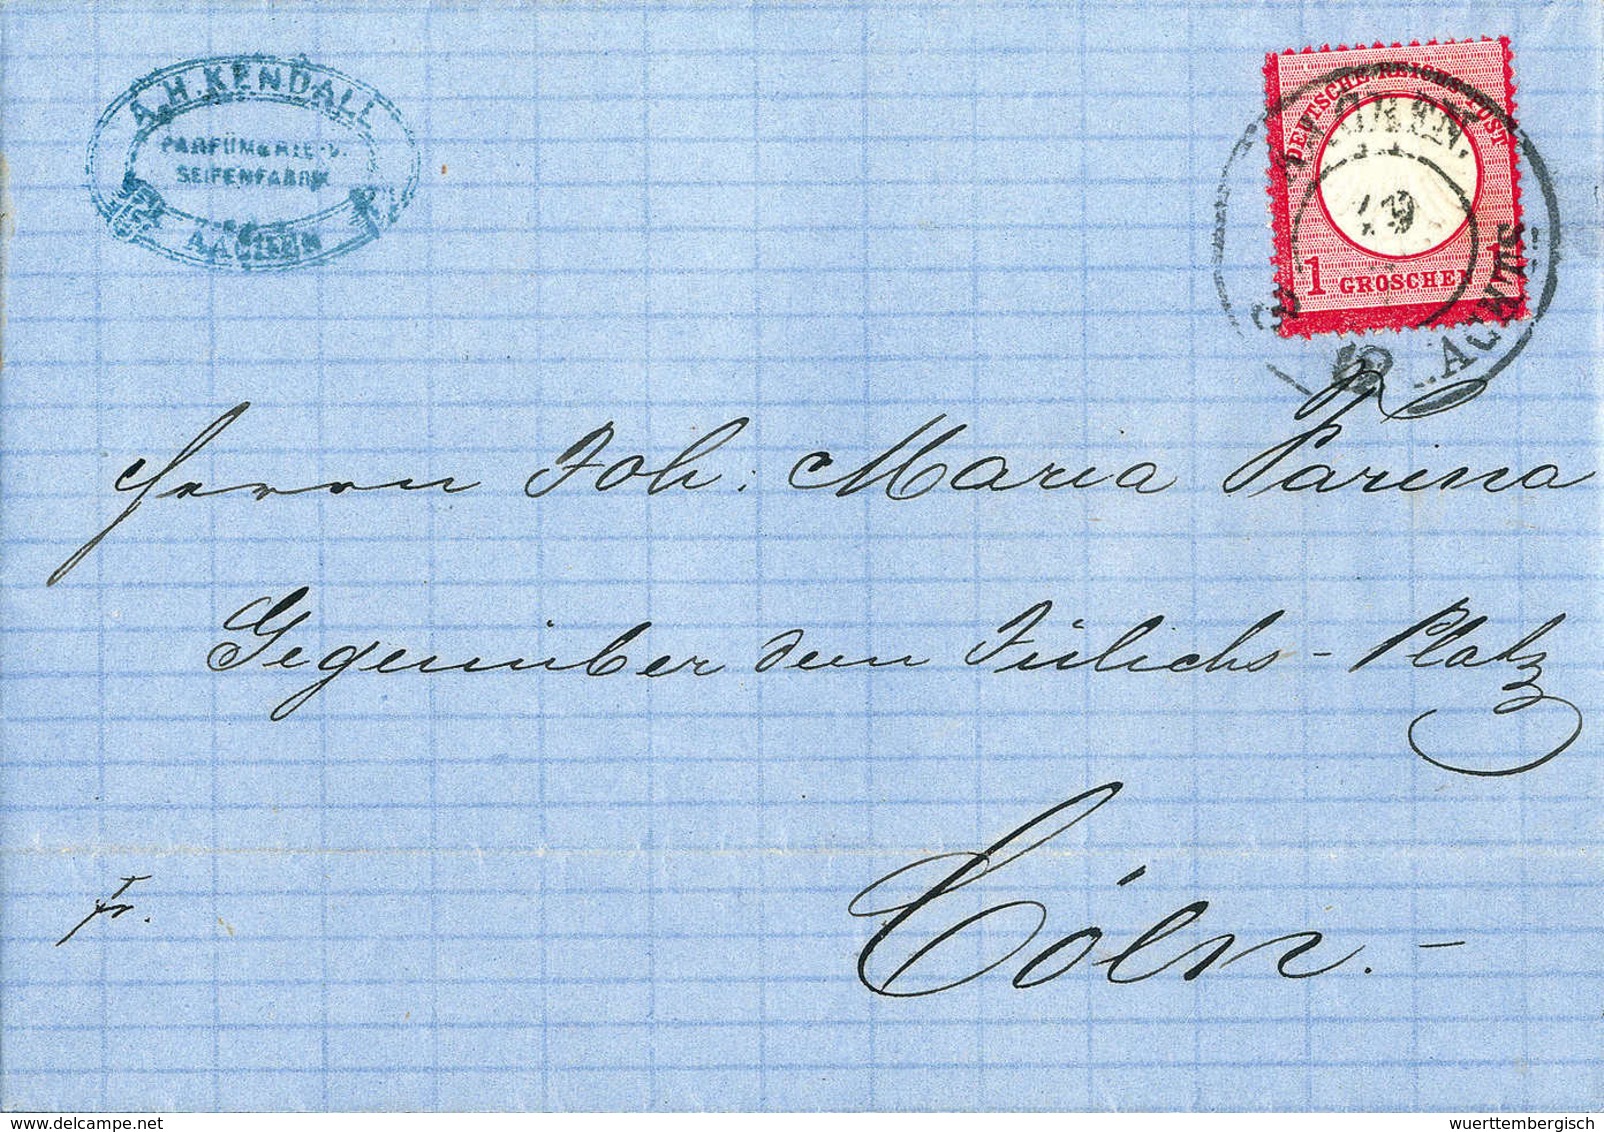 A.H. KENDALL
PARFÜMERIE- U.
SEIFENFABRIK
AACHEN
DEUTSCHE REICHS-POST
1 GROSCHEN 1
Herrn Joh: Maria Farina
Gegenüber dem Jülichs-Platz
Cöln.-
Fr.
wuerttembergisch